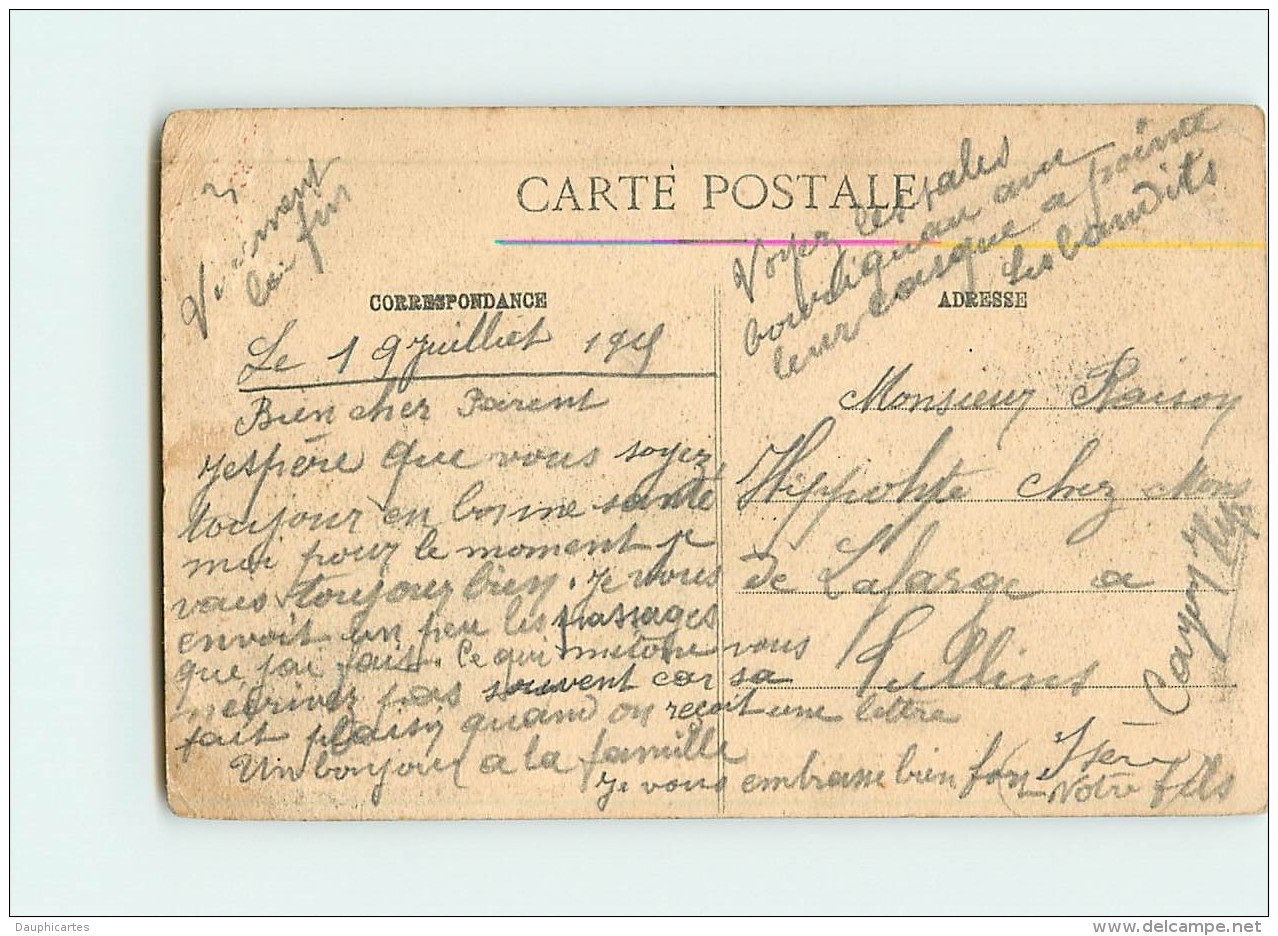 Vivement
la fin
CARTE POSTALE
Voyez les sales
avec
leur casque a pointe
les bandits
CORRESPONDANCE
ADRESSE
Le 19 Juillet 1915
Bien cher Parent
J'espère que vous soyez
toujour en bonne santé
moi pour le moment je
vais toujour bien. Je vous
envoit un peu les passages
que jai fait. Ce qui vous
m'ecrivez pas souvent car sa
fait plaisir quand on reçoit une lettre
Un bonjour a la famille
Je vous embrasse bien for
Votre fils
Monsieur
Hippolyte chez Mons
de Lafarge a
Tullins
Isère
Dauphicartes
www.delcampe.net